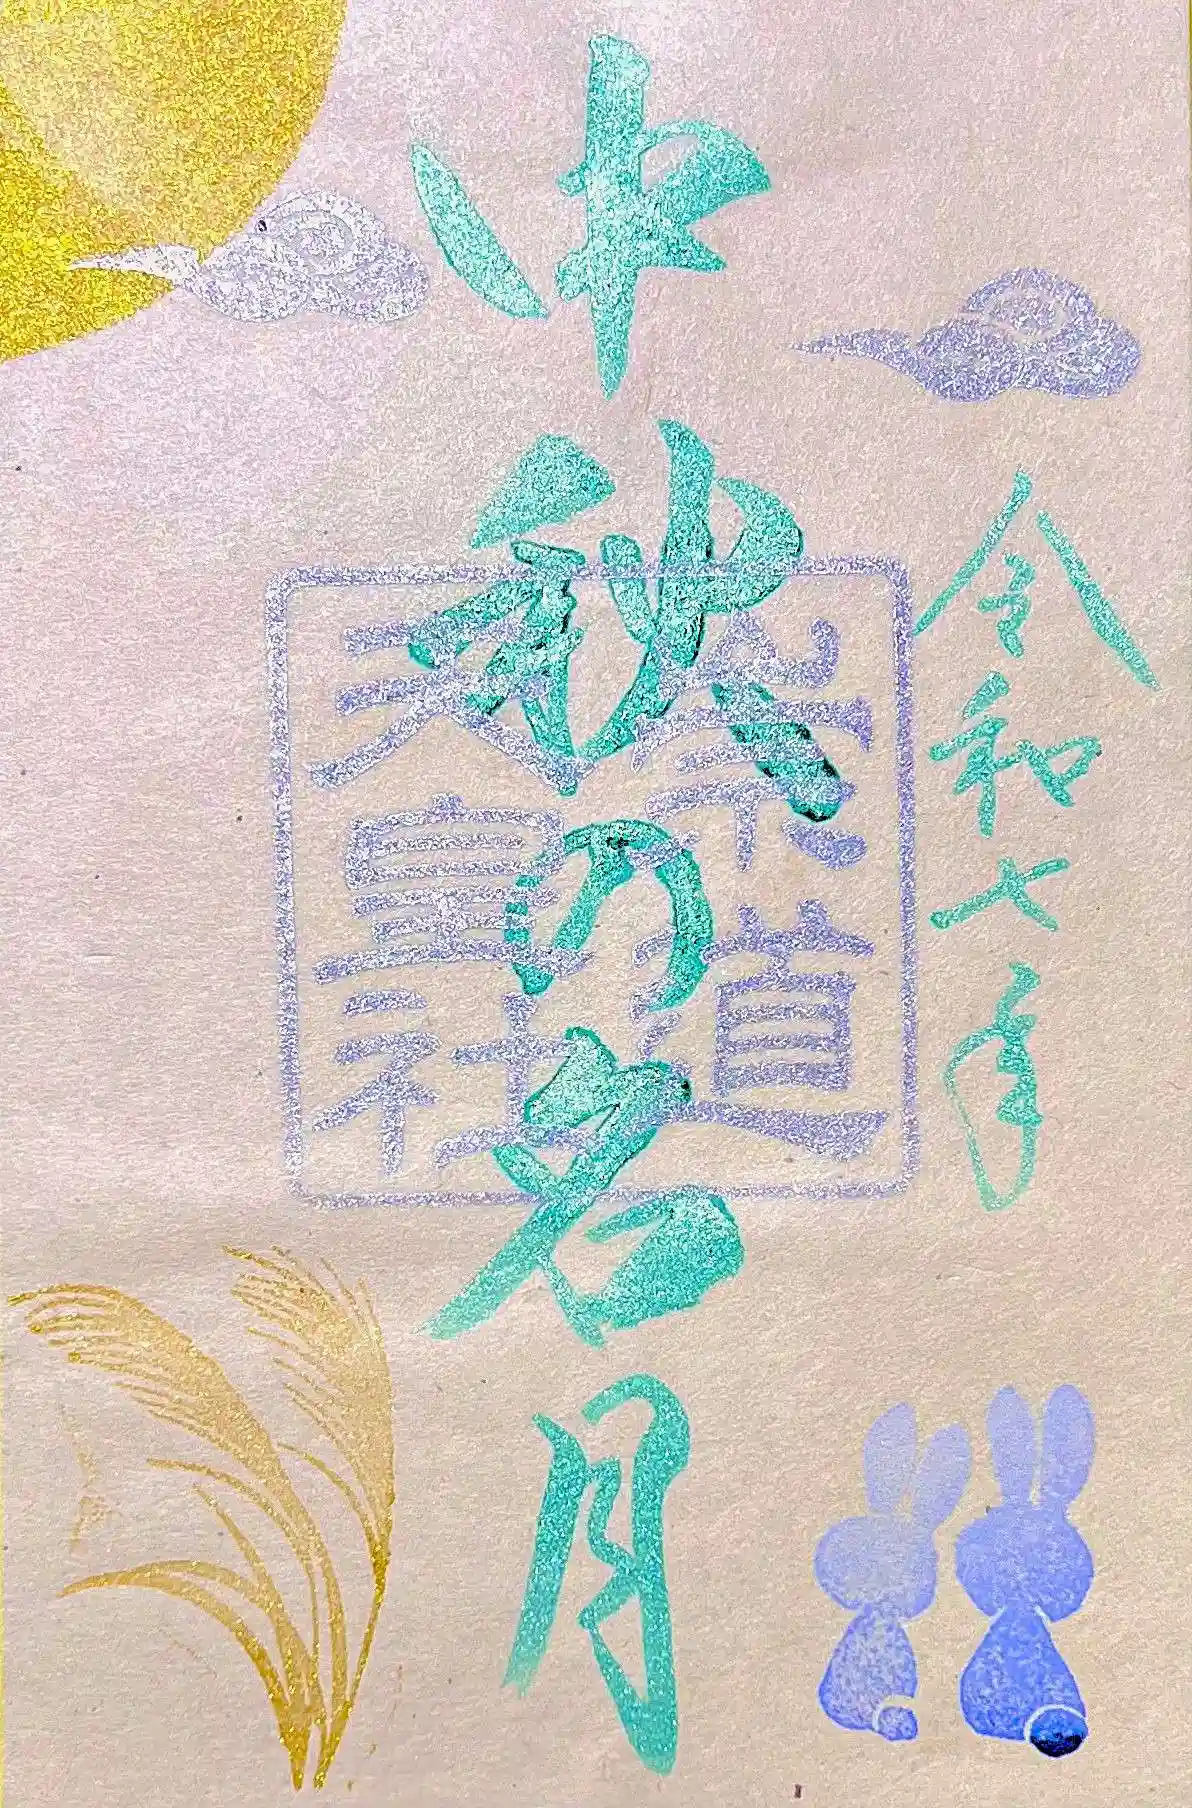 令和七年
中秋の名月
崇道
天皇社